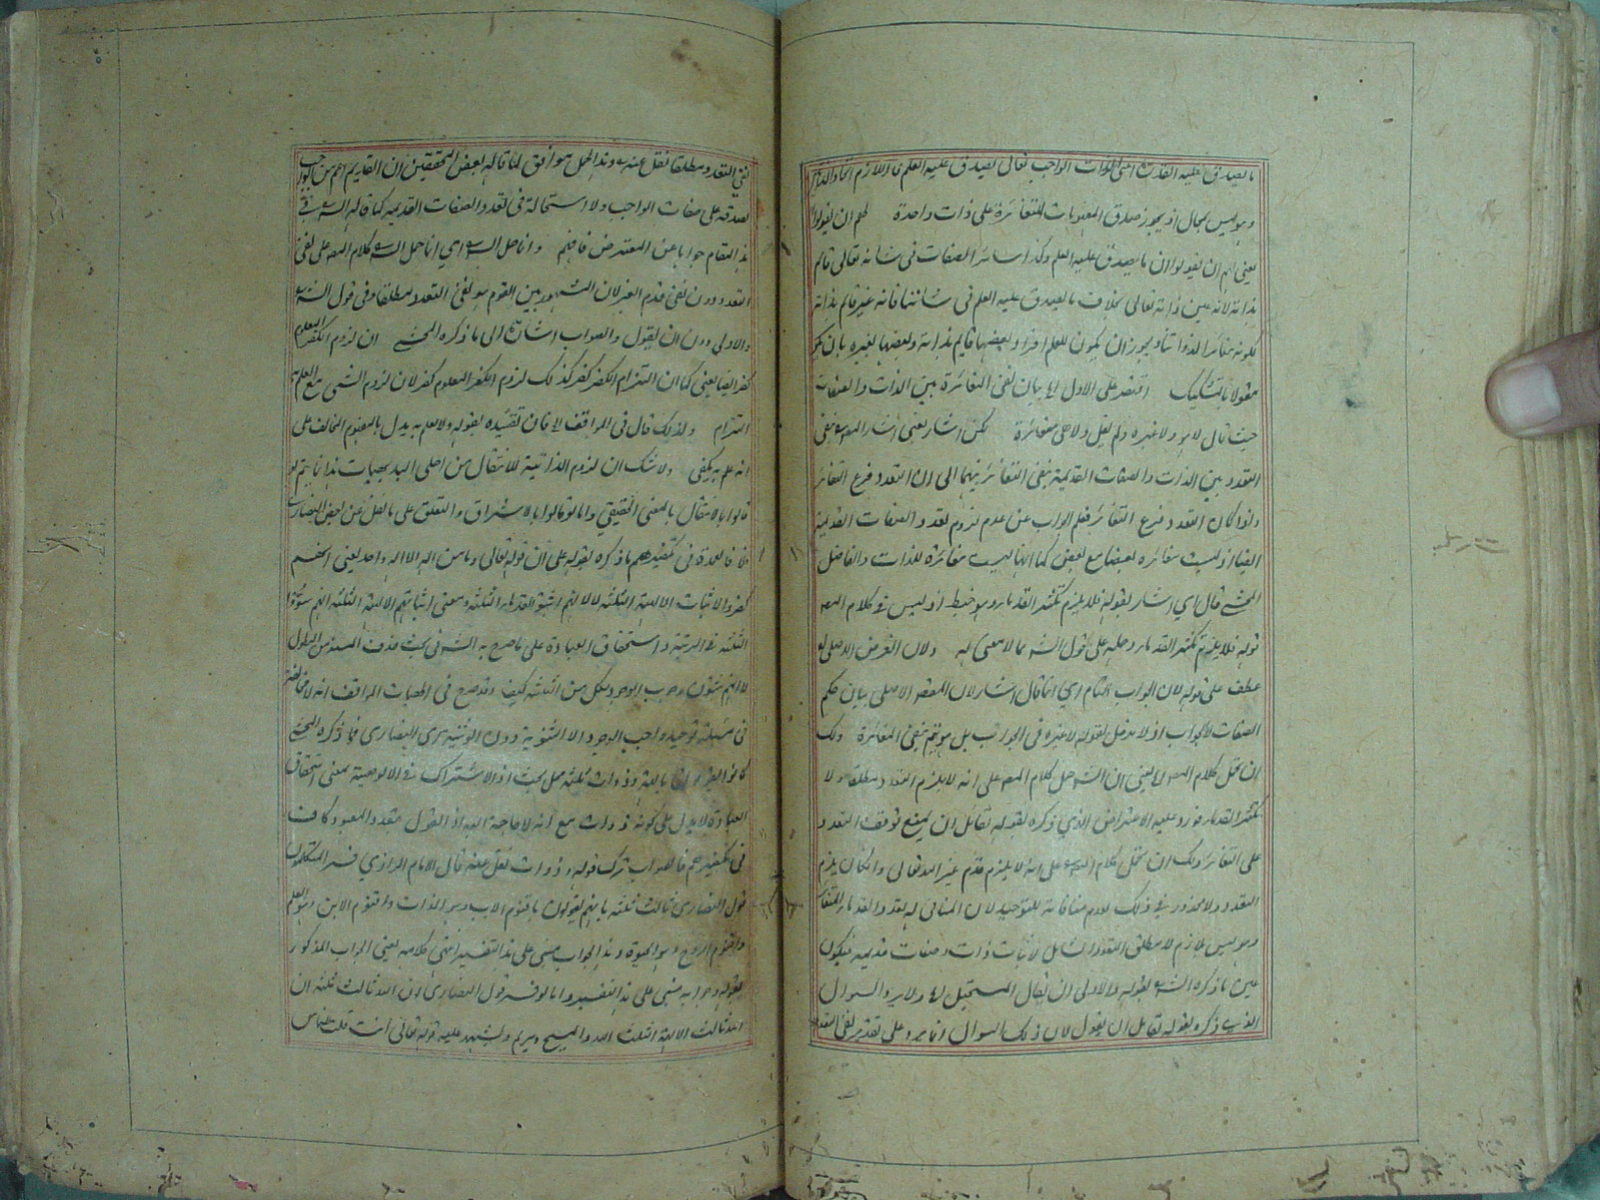 ما يصدق عليه القدرة اعنى الذات الواجب تعالى يصدق عليه العلم فاللازم اتحاد الذات
وهو ليس بمحال اذ يجوز صدق المفهومات المتغائرة على ذات واحدة لهم ان يقولوا
يعنى لهم ان يقولوا ان ما يصدق عليه العلم وكذا سائر الصفات فى شانه تعالى قائم
بذاته لانه عين ذاته تعالى بخلاف ما يصدق عليه العلم فى شاننا فانه غير قائم بذاته
لكونه مغائرا لذواتنا ويجوز ان يكون للعلم افراد بعضها قائم بذاته وبعضها بغيره بان يكون
مقولا بالتشكيك اقتصر على الاول اى بيان نفى المغائرة بين الذات والصفات
حيث قال لا هو ولا غيره ولم يقل ولا هى متغائرة لكن اشار يعنى اشار المص بنفى
التعدد بين الذات والصفات القديمة بنفى التغائر بينهما الى ان التعدد فرع التغائر
واذا كان التعدد فرع التغائر فعلم الجواب عن عدم لزوم تعدد الصفات القديمة
ايضا اذ ليست مغائرة بعضها مع بعض كما انها ليست مغائرة للذات والفاضل
المحشى قال اى اشار بقوله فلا يلزم تكثر القدماء وهو خبط اذ ليس فى كلام المص
قوله فلا يلزم تكثر القدماء وحمله على قول الشه مما لا معنى له ولان الغرض الاصلى له
عطف على قوله لان الجواب تام اى انما قال اشار لان المقصد الاصلى بيان حكم
الصفات لا الجواب اذ لا مدخل لقوله لا غيره فى الجواب بل هو يتم بنفى المغائرة ولك
ان تحمل كلام المص يعنى ان الشه حمل كلام المص على انه لا يلزم التعدد مطلقا ولا
تكثر القدماء فورد عليه الاعتراض الذى ذكره بقوله لقائل ان يمنع توقف التعدد
على التغائر ولك ان تحمل كلام المص على انه لا يلزم قدم غير الله تعالى وان كان يلزم
التعدد ولا محذور فى ذلك لعدم منافاته للتوحيد لان المنافى له تعدد القدماء المتغائرة
وهو ليس بلازم لا مطلق التعدد الشامل لاثبات ذات وصفات قديمة فيكون
عين ما ذكره الشه بقوله والاولى ان يقال المستحيل اه ولا يرد السوال
الذى ذكره بقوله لقائل ان يقول لان ذلك السوال انما يرد على تقدير نفى التعدد
نفى التعدد مطلقا نقل عنه وهذا الحمل موافق لما قاله بعض المحققين ان القديم اعم من الواجب
لصدقه على صفات الواجب ولا استحالة فى تعدد الصفات القديمة كما قاله الشه فى
هذا المقام جوابا عن المعترض فافهم وانما حمل الشه اى انما حمل الشه كلام المص على نفى
التعدد دون نفى قدم الغير لان المشهور بين القوم هو نفى التعدد مطلقا وفى قول الشه
والاولى دون ان يقول والصواب اشارة الى ما ذكره المحشى ان لزوم الكفر المعلوم
كفر ايضا يعنى كما ان التزام الكفر كفر كذلك لزوم الكفر المعلوم كفر لان لزوم الشئ مع العلم به
التزام ولذلك قال فى المواقف الا فان تقييده بقوله ولا يعلم به يدل بالمفهوم المخالف على
انه علم به يكفى ولا شك ان لزوم الذاتية للانتقال من اجلى البديهيات هذا انما يتم لو
قالوا بالانتقال بالمعنى الحقيقى واما لو قالوا بالاشراق والتعلق على ما نقل عن بعض النصارى
فلا فالعمدة فى تكفيرهم ما ذكره بقوله على ان قوله تعالى وما من اله الا اله واحد يعنى انهم
كفروا لاثبات الآلهة الثلثة لا لانهم اثبتوا القدماء الثلثة ومعنى اثباتهم الآلهة الثلثة انهم سووا
الثلثة فى الرتبة واستحقاق العبادة على ما صرح به الشه فى بحث حذف المسند من المطول
لا انهم يثبتون وجوب الوجود لكل من الثلثة كيف وقد صرح فى الهيات المواقف انه لا مخالفة
فى مسئلة توحيد واجب الوجود الا الثنوية دون الوثنية سوى النصارى فما ذكره المحشى
كانوا القوا ان بآلهة وذوات ثلثة محل بحث اذ الاشتراك فى الالوهية بمعنى استحقاق
العبادة لا يدل على كونه ذوات مع انه لا حاجة اليه اذ القول بتعدد المعبود كاف
فى تكفيرهم فالصواب ترك قوله وذوات نقل عنه قال الامام الرازى فسر المتكلمون
قول النصارى ثالث ثلثة بانهم يقولون باقنوم الاب وهو الذات واقنوم الابن وهو العلم
واقنوم الروح وهو الحيوة وهذا الجواب مبنى على هذا التفسير انتهى كلامه يعنى الجواب المذكور
بقوله وجوابه مبنى على هذا التفسير واما لو فسر قول النصارى ان الله ثالث ثلثة ان
الله ثالث الآلهة الثلث الله والمسيح ومريم ويشهد عليه قوله تعالى أانت قلت للناس